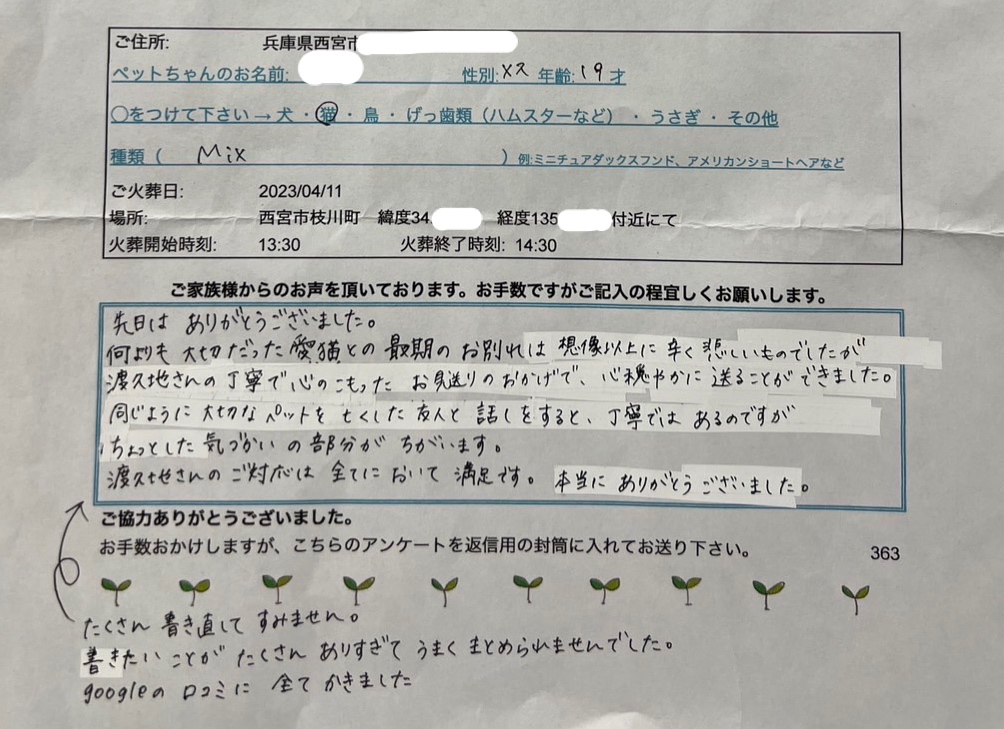 ご住所: 兵庫県西宮市
ペットちゃんのお名前: 性別:メス 年齢:19才
〇をつけて下さい→犬・猫・鳥・げっ歯類（ハムスターなど）・うさぎ・その他
種類（ Mix ）例:ミニチュアダックスフンド、アメリカンショートヘアなど
ご火葬日: 2023/04/11
場所: 西宮市枝川町 緯度34. 経度135 付近にて
火葬開始時刻: 13:30 火葬終了時刻: 14:30
ご家族様からのお声を頂いております。お手数ですがご記入の程宜しくお願いします。
先日は ありがとうございました。
何よりも 大切だった 愛猫との 最期の お別れは 想像以上に 辛く 悲しいものでしたが
渡久地さんの 丁寧で 心のこもった お見送りのおかげで、心穏やかに 送ることができました。
同じように 大切な ペットを 亡くした 友人と 話しをすると、丁寧では あるのですが
ちょっとした 気づかいの 部分が ちがいます。
渡久地さんの ご対応は 全てに おいて 満足です。 本当に ありがとうございました。
ご協力ありがとうございました。
お手数おかけしますが、こちらのアンケートを返信用の封筒に入れてお送り下さい。 363
たくさん 書き直して すみません。
書きたい ことが たくさん ありすぎて うまく まとめられませんでした。
googleの 口コミに 全て かきました